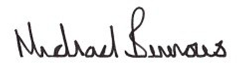 Michael Burrows